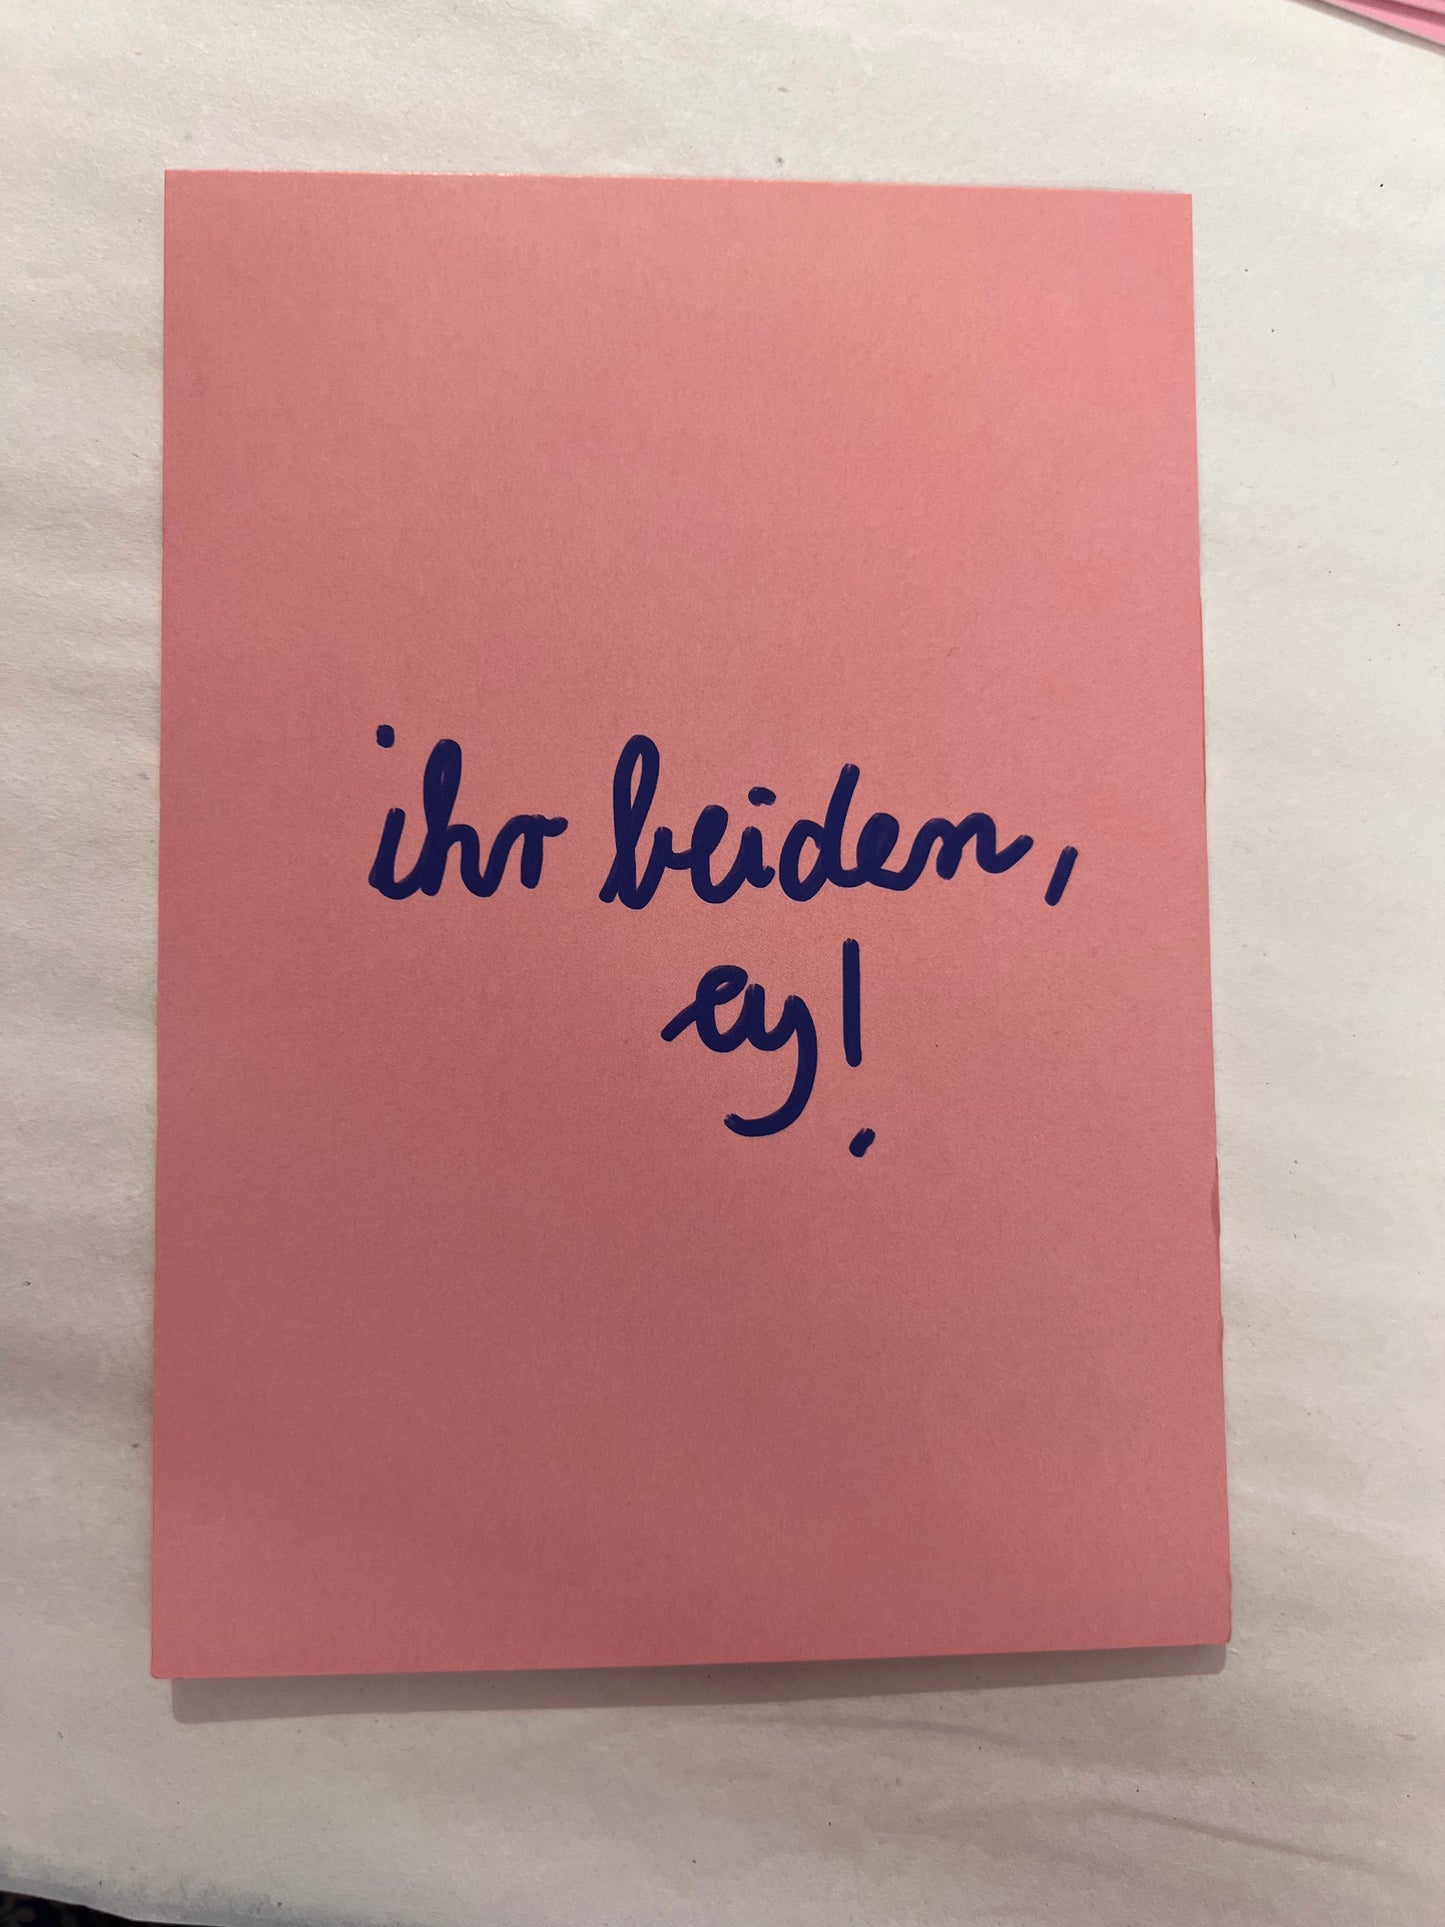 ihr beiden,
ey!